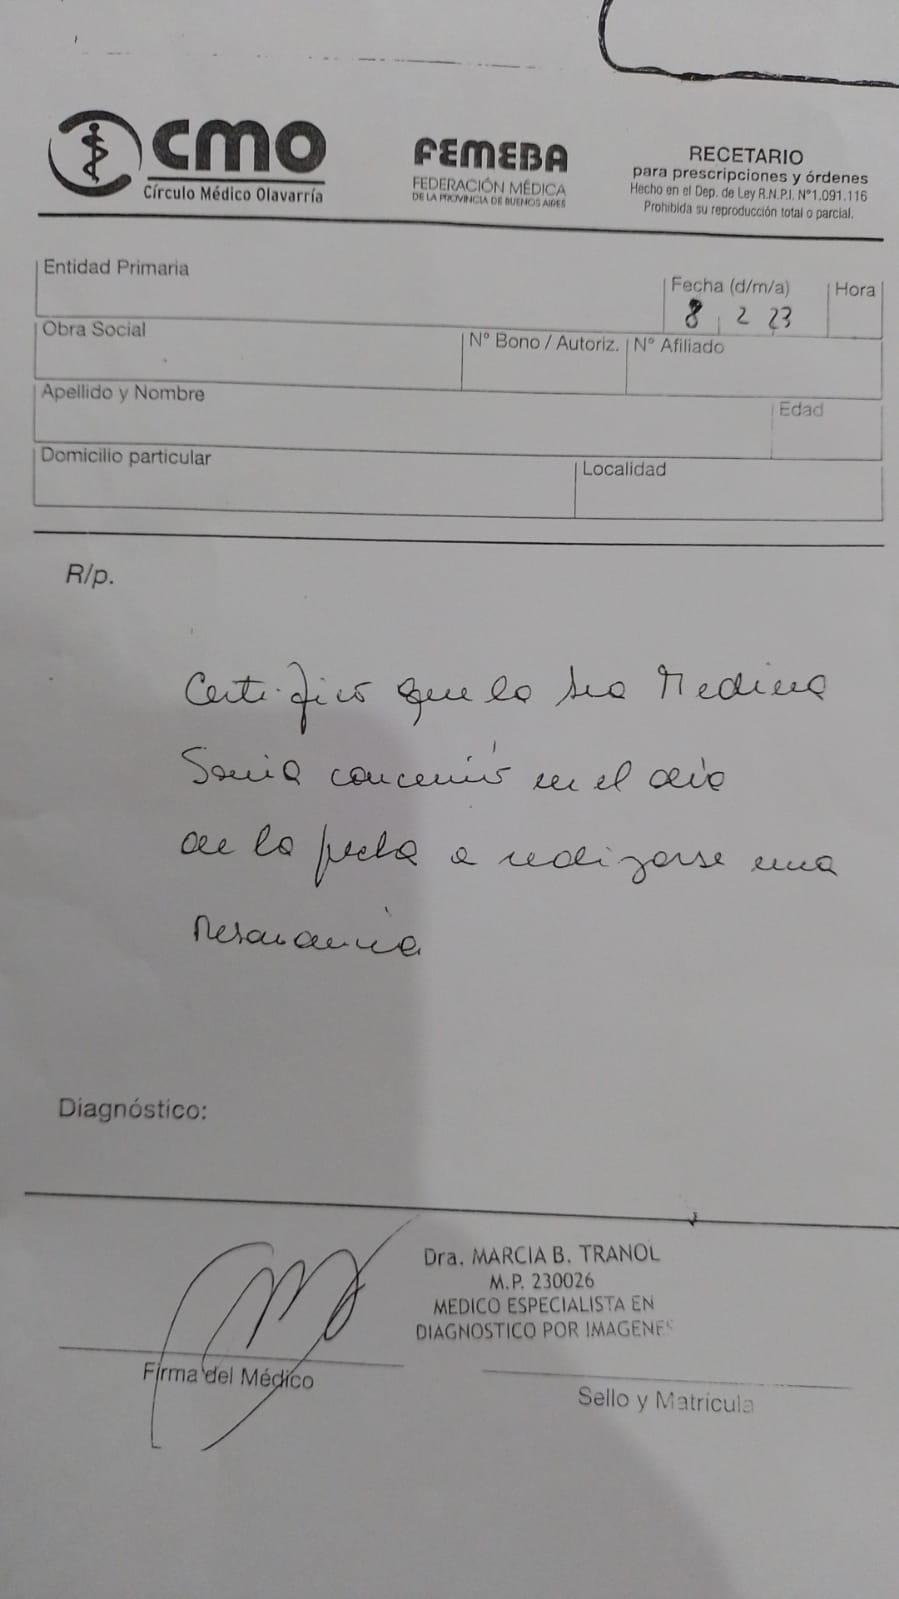 CMO
Círculo Médico Olavarría
FEMEBA
FEDERACIÓN MÉDICA
DE LA PROVINCIA DE BUENOS AIRES
RECETARIO
para prescripciones y órdenes
Hecho en el Dep. de Ley R.N.P.I. N°1.091.116
Prohibida su reproducción total o parcial.
Entidad Primaria
Fecha (d/m/a)
8 2 23
Hora
Obra Social
N° Bono / Autoriz.
N° Afiliado
Apellido y Nombre
Edad
Domicilio particular
Localidad
R/p.
Certifico que la Sra Medina
Sonia concurrió en el día
de la fecha a realizarse una
Resonancia
Diagnóstico:
Dra. MARCIA B. TRANOL
M.P. 230026
MEDICO ESPECIALISTA EN
DIAGNOSTICO POR IMAGENES
Firma del Médico
Sello y Matrícula